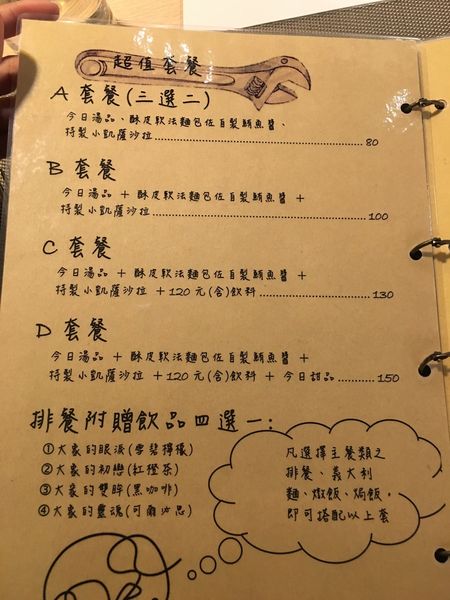 超值套餐
A 套餐(三選二)
今日湯品、酥皮軟法麵包佐自製鮪魚醬、
特製小凱薩沙拉............80
B 套餐
今日湯品 + 酥皮軟法麵包佐自製鮪魚醬 +
特製小凱薩沙拉............100
C 套餐
今日湯品 + 酥皮軟法麵包佐自製鮪魚醬 +
特製小凱薩沙拉 +120 元(含)飲料............130
D 套餐
今日湯品 + 酥皮軟法麵包佐自製鮪魚醬 +
特製小凱薩沙拉 +120 元(含)飲料 + 今日甜品............150
排餐附贈飲品四選一:
①大象的眼淚(雪碧檸檬)
②大象的初戀(紅橙茶)
③大象的雙眸(黑咖啡)
④大象的靈魂(可爾必思)
凡選擇主餐類之
排餐、義大利
麵、燉飯、焗飯,
即可搭配以上套